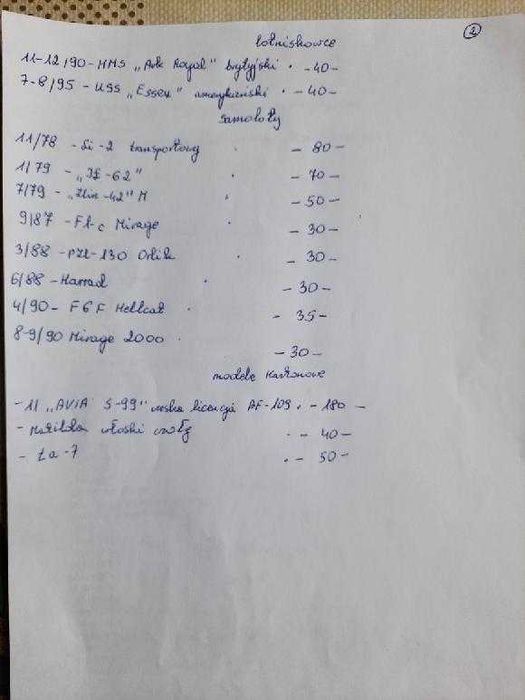 2
lotniskowce
11-12/90 - HMS „Ark Royal" brytyjski • - 40 -
7-8/95 - USS „Essex" amerykański • - 40 -
Samoloty
11/78 - Li-2 transportowy • - 80 -
1/79 - „Ił-62" • - 70 -
7/79 - „Zlin-42" M • - 50 -
9/87 - F1-c Mirage • - 30 -
3/88 - PZL-130 Orlik • - 30 -
6/88 - Harrad • - 30 -
4/90 - F6F Hellcat • - 35 -
8-9/90 Mirage 2000 • - 30 -
modele Kartonowe
- 11 „AVIA S-99" licencja • - 180 -
- Matilda czołg • - 40 -
- Ła-7 • - 50 -